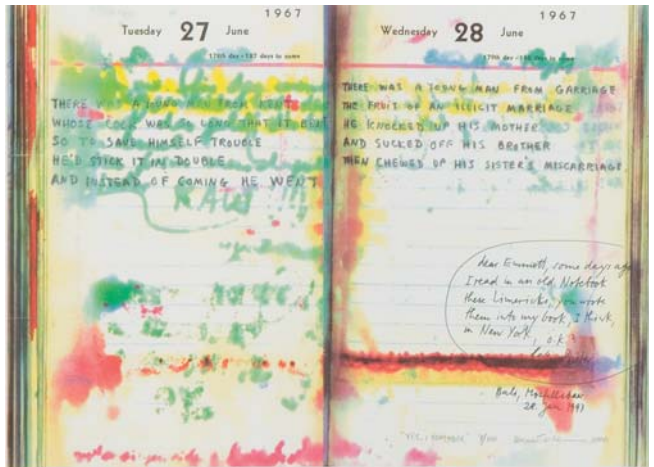 1967
Tuesday 27 June
178th day - 187 days to come
THERE WAS A YOUNG MAN FROM KENT
WHOSE COCK WAS SO LONG THAT IT BENT
SO TO SAVE HIMSELF TROUBLE
HE'D STICK IT IN DOUBLE
AND INSTEAD OF COMING HE WENT
RAW
1967
Wednesday 28 June
179th day - 186 days to come
THERE WAS A YOUNG MAN FROM GARRIAGE
THE FRUIT OF AN ILLICIT MARRIAGE
HE KNOCKED UP HIS MOTHER
AND SUCKED OFF HIS BROTHER
THEN CHEWED UP HIS SISTER'S MISCARRIAGE
dear Emmett, some days ago
I read in an old Notebook
these Limericks, you wrote
them into my book, I think,
in New York,
O.K?
28. Jan. 1997